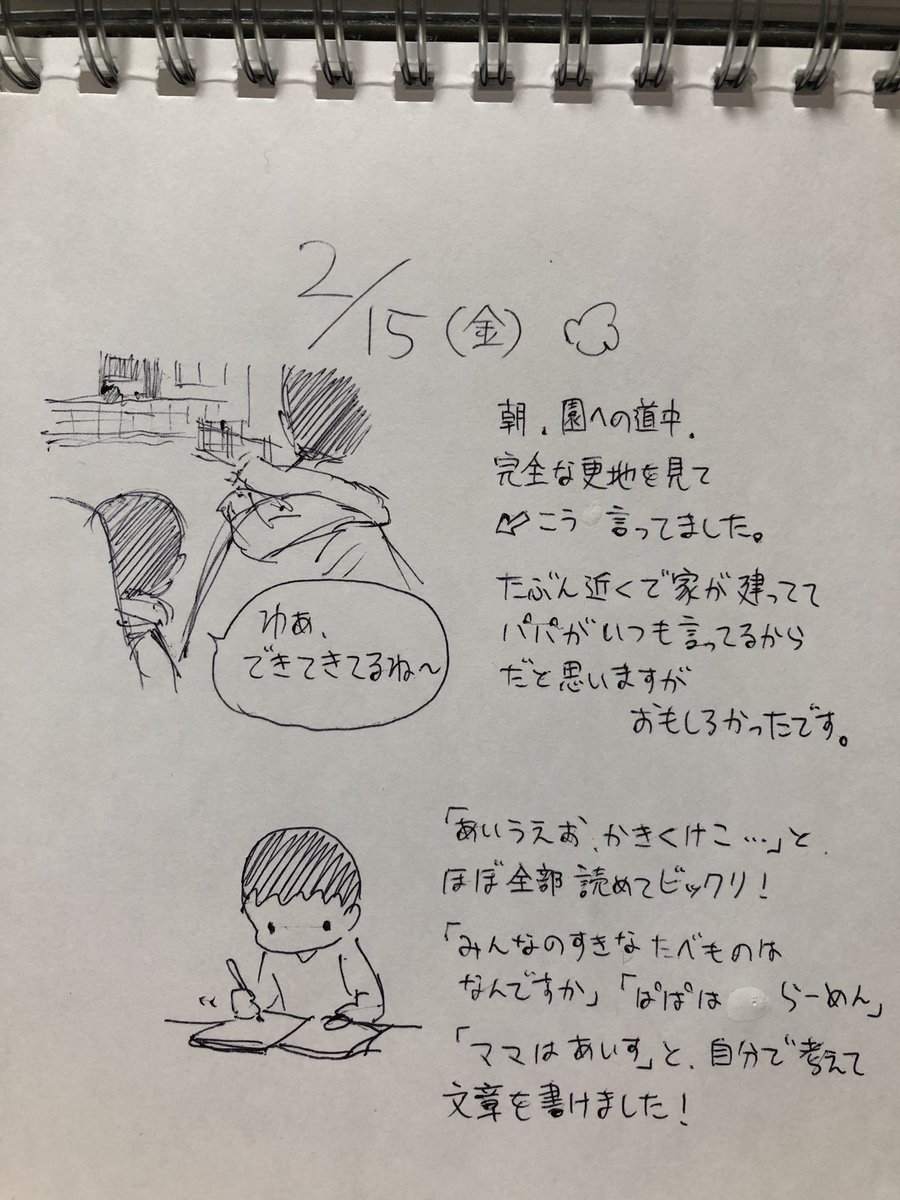 2/15(金)
朝、園への道中、
完全な更地を見て
こう言ってました。
たぶん近くで家が建ってて
パパがいつも言ってるから
だと思いますが
おもしろかったです。
ゆあ、
できてきてるね〜
「あいうえお、かきくけこ…」と、
ほぼ全部読めてビックリ!
「みんなのすきなたべものは
なんですか」「ぱぱは らーめん」
「ママはあいす」と、自分で考えて
文章を書けました!